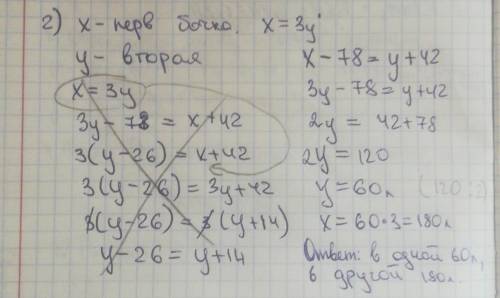 2) x - перв бочка. x = 3y
y - вторая
x = 3y
3y - 78 = x + 42
3(y - 26) = x + 42
3(y - 26) = 3y + 42
3(y - 26) = 3(y + 14)
y - 26 = y + 14
x - 78 = y + 42
3y - 78 = y + 42
2y = 42 + 78
2y = 120
y = 60л (120:2)
x = 60*3 = 180л
Ответ: в одной 60л,
в другой 180л.